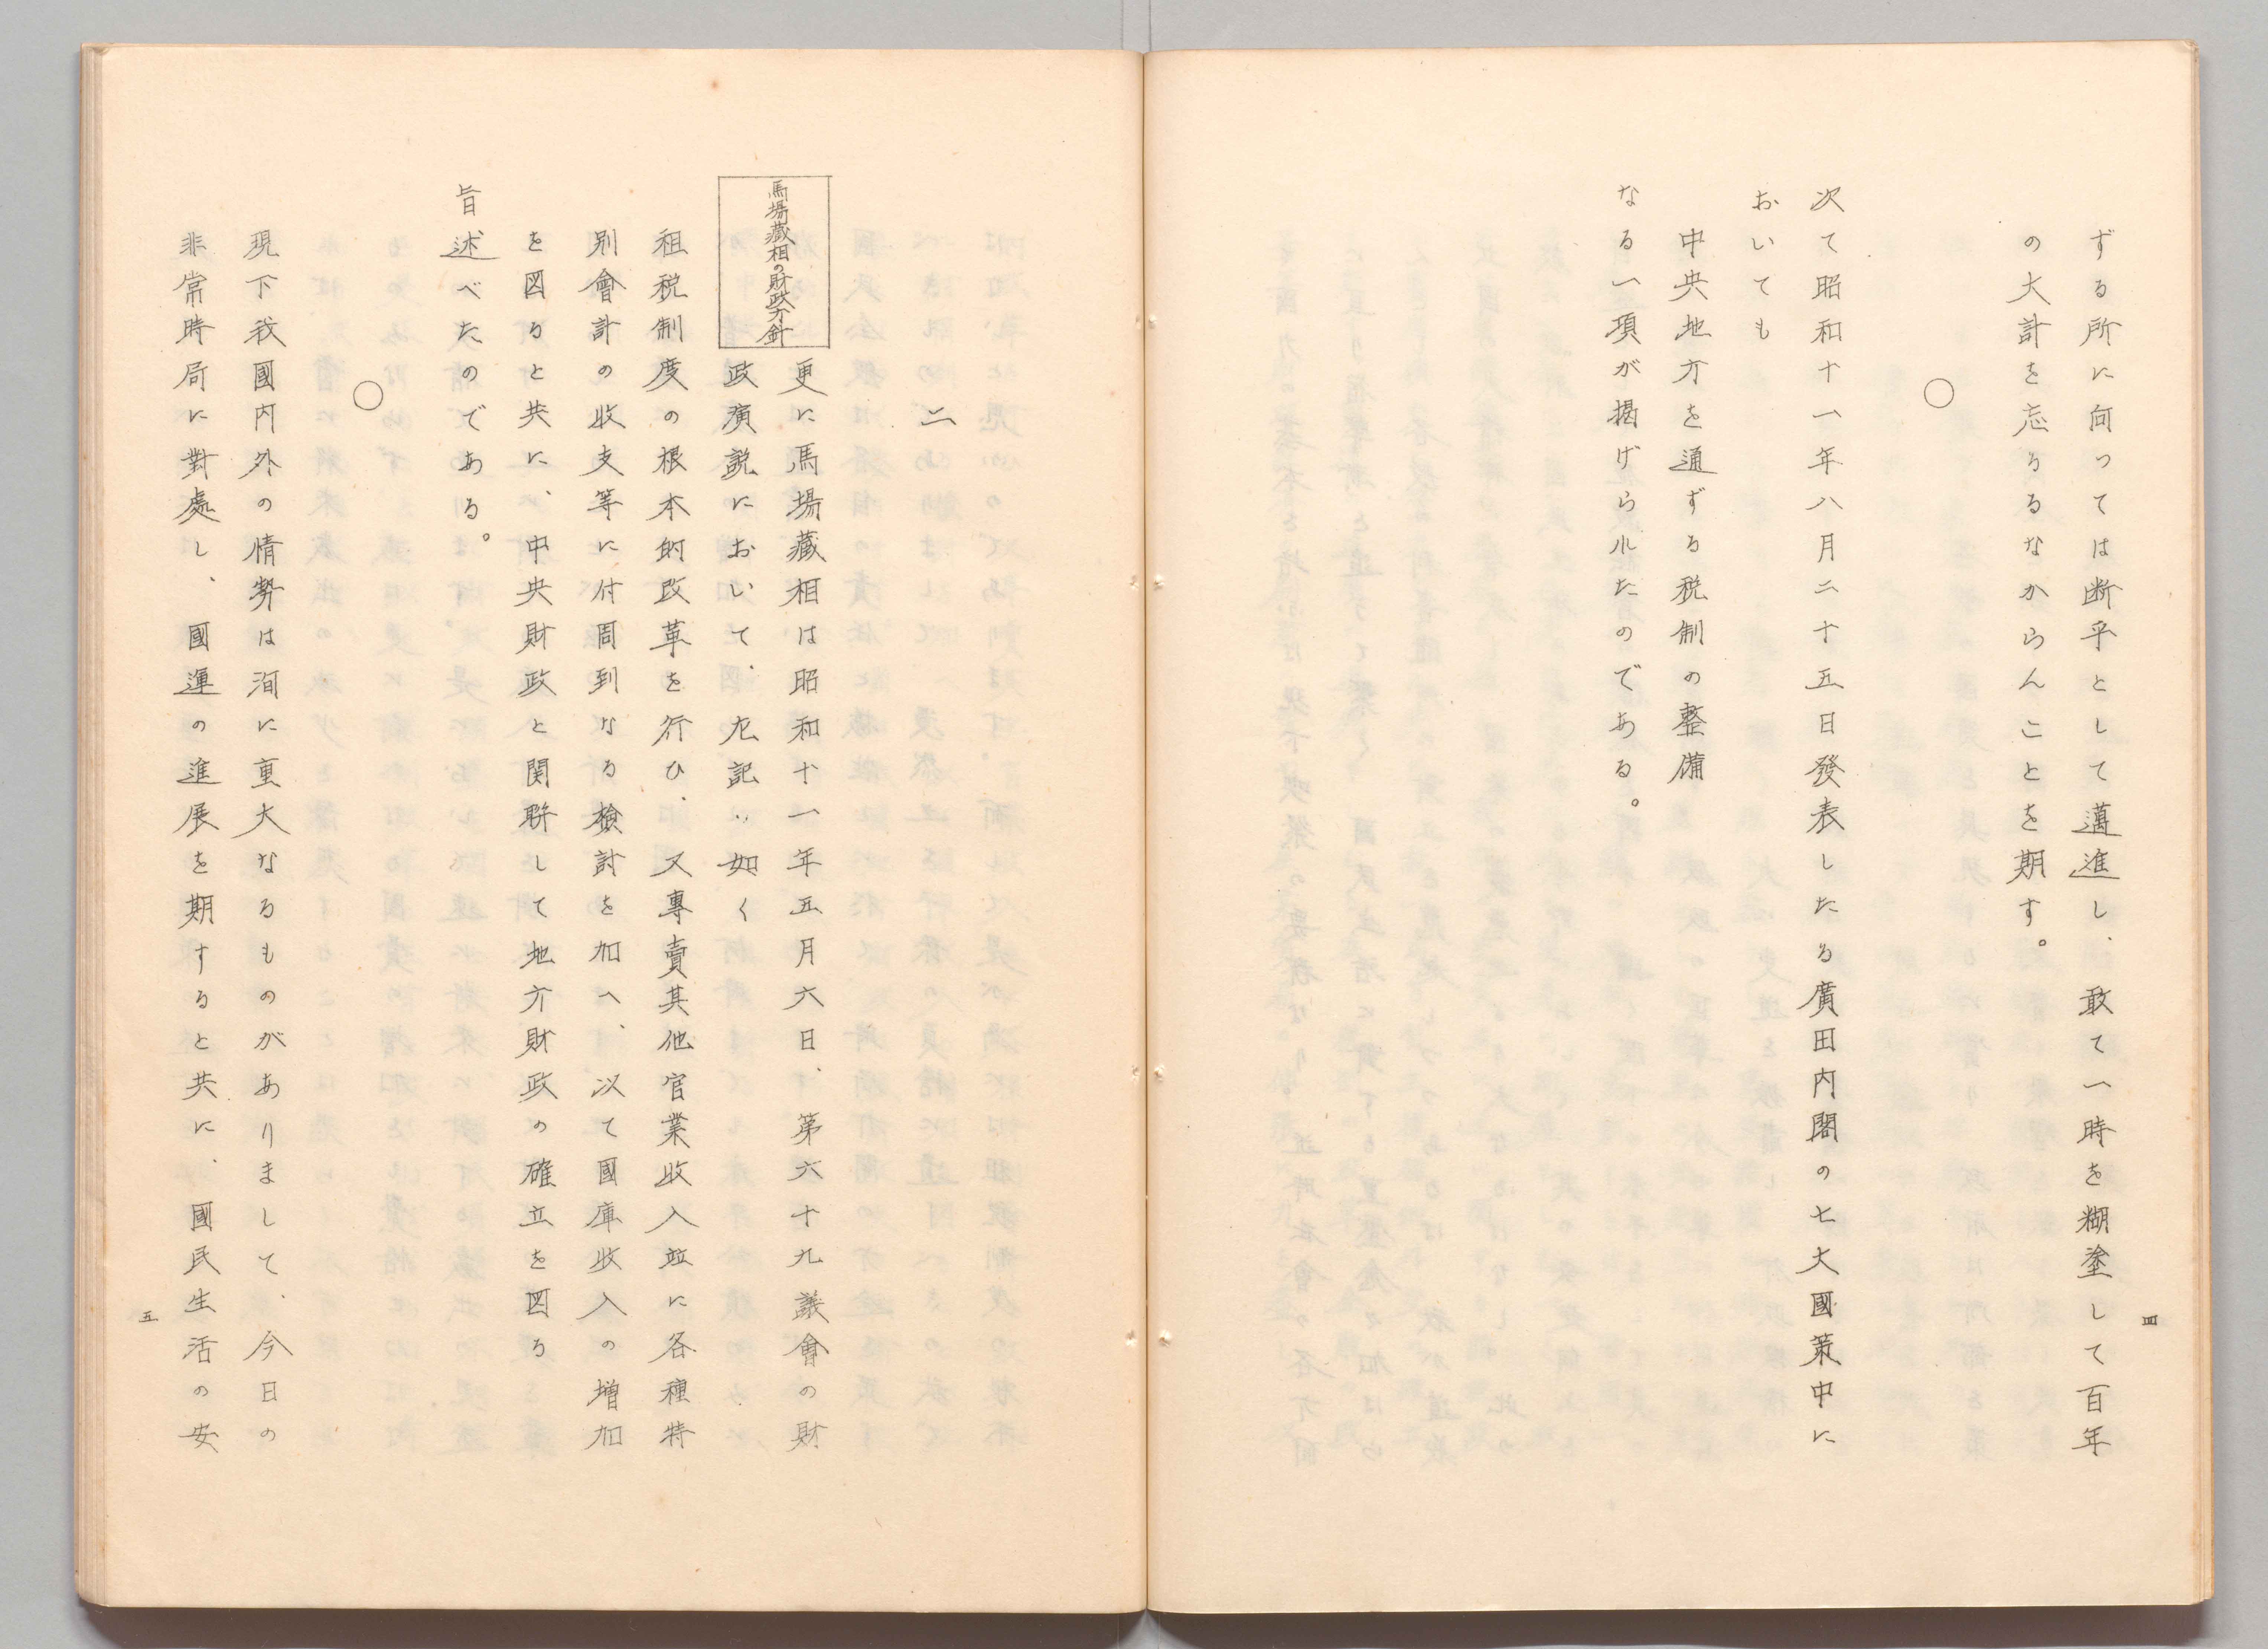 ずる所に向っては断乎として邁進し、敢て一時を糊塗して百年
の大計を忘るるなからんことを期す。
○
次て昭和十一年八月二十五日發表したる廣田内閣の七大國策中に
おいても
中央地方を通ずる税制の整備
なる一項が揭げられたのである。
四
二
馬場藏相の財政方針
更に馬場藏相は昭和十一年五月六日、第六十九議會の財
政演説において、左記の如く
租税制度の根本的改革を行ひ、又專賣其他官業收入竝に各種特
別會計の收支等に付周到なる檢討を加へ、以て國庫收入の増加
を図ると共に、中央財政と関聯して地方財政の確立を図る
旨述べたのである。
○
現下我國内外の情勢は洵に重大なるものがありまして、今日の
非常時局に對處し、國運の進展を期すると共に、國民生活の安
五